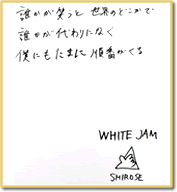 誰かが笑うと 世界のどこかで
誰かが代わりになく
僕にもたまに 順番がくる
WHITE JAM
SHIROSE